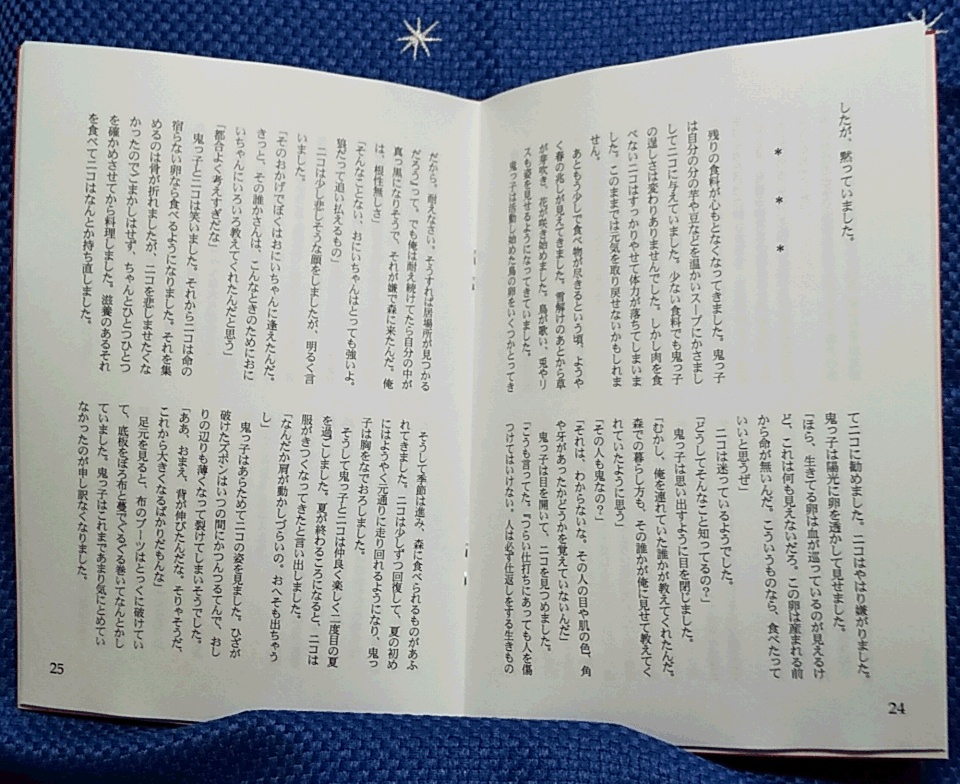 したが、黙っていました。
＊　＊　＊
残りの食料が心もとなくなってきました。鬼っ子
は自分の分の芋や豆などを温かいスープにかさまし
してニコに与えていました。少ない食料でも鬼っ子
の逞しさは変わりありませんでした。しかし肉を食
べないニコはすっかりやせて体力が落ちてしまいま
した。このままでは元気を取り戻せないかもしれま
せん。
あともう少しで食べ物が尽きるという頃、ようや
く春の兆しが見えてきました。雪解けのあとから草
が芽吹き、花が咲き始めました。鳥が歌い、兎やリ
スも姿を見せるようになってきていました。
鬼っ子は活動し始めた鳥の卵をいくつかとってき
てニコに勧めました。ニコはやはり嫌がりました。
鬼っ子は陽光に卵を透かして見せました。
「ほら、生きてる卵は血が巡っているのが見えるけ
ど、これは何も見えないだろう。この卵は産まれる前
から命が無いんだ。こういうものなら、食べたって
いいと思うぜ」
ニコは迷っているようでした。
「どうしてそんなこと知ってるの？」
鬼っ子は思い出すように目を閉じました。
「むかし、俺を連れていた誰かが教えてくれたんだ。
森での暮らし方も、その誰かが俺に見せて教えてく
れていたように思う」
「その人も鬼なの？」
「それは、わからないな。その人の目や肌の色、角
や牙があったかどうかを覚えていないんだ」
鬼っ子は目を開いて、ニコを見つめました。
「こうも言ってた。『つらい仕打ちにあっても人を傷
つけてはいけない。人は必ず仕返しをする生きもの
24
だから。耐えなさい。そうすれば居場所が見つかる
だろう』って。でも俺は耐え続けてたら自分の中が
真っ黒になりそうで、それが嫌で森に来たんだ。俺
は、根性無しさ」
「そんなことない、おにいちゃんはとっても強いよ。
狼だって追い払えるもの」
ニコは少し悲しそうな顔をしましたが、明るく言
いました。
「そのおかげでぼくはおにいちゃんに逢えたんだ。
きっと、その誰かさんは、こんなときのためにおに
いちゃんにいろいろ教えてくれたんだと思う」
「都合よく考えすぎだな」
鬼っ子とニコは笑いました。それからニコは命の
宿らない卵なら食べるようになりました。それを集
めるのは骨が折れましたが、ニコを悲しませたくな
かったのでごまかしはせず、ちゃんとひとつひとつ
を確かめさせてから料理しました。滋養のあるそれ
を食べてニコはなんとか持ち直しました。
そうして季節は進み、森に食べられるものがあふ
れてきました。ニコは少しずつ回復して、夏の初め
にはようやく元通りに走り回れるようになり、鬼っ
子は胸をなでおろしました。
そうして鬼っ子とニコは仲良く楽しく二度目の夏
を過ごしました。夏が終わるころになると、ニコは
服がきつくなってきたと言い出しました。
「なんだか肩が動かしづらいの。おへそも出ちゃう
し」
鬼っ子はあらためてニコの姿を見ました。ひざが
破けたズボンはいつの間にかつんつるてんで、おし
りの辺りも薄くなって裂けてしまいそうでした。
「ああ、おまえ、背が伸びたんだな。そりゃそうだ、
これから大きくなるばかりだもんな」
足元を見ると、布のブーツはとっくに破けてい
て、底板をぼろ布と蔓でぐるぐる巻いてなんとかし
ていました。鬼っ子はこれまであまり気にとめてい
なかったのが申し訳なくなりました。
25